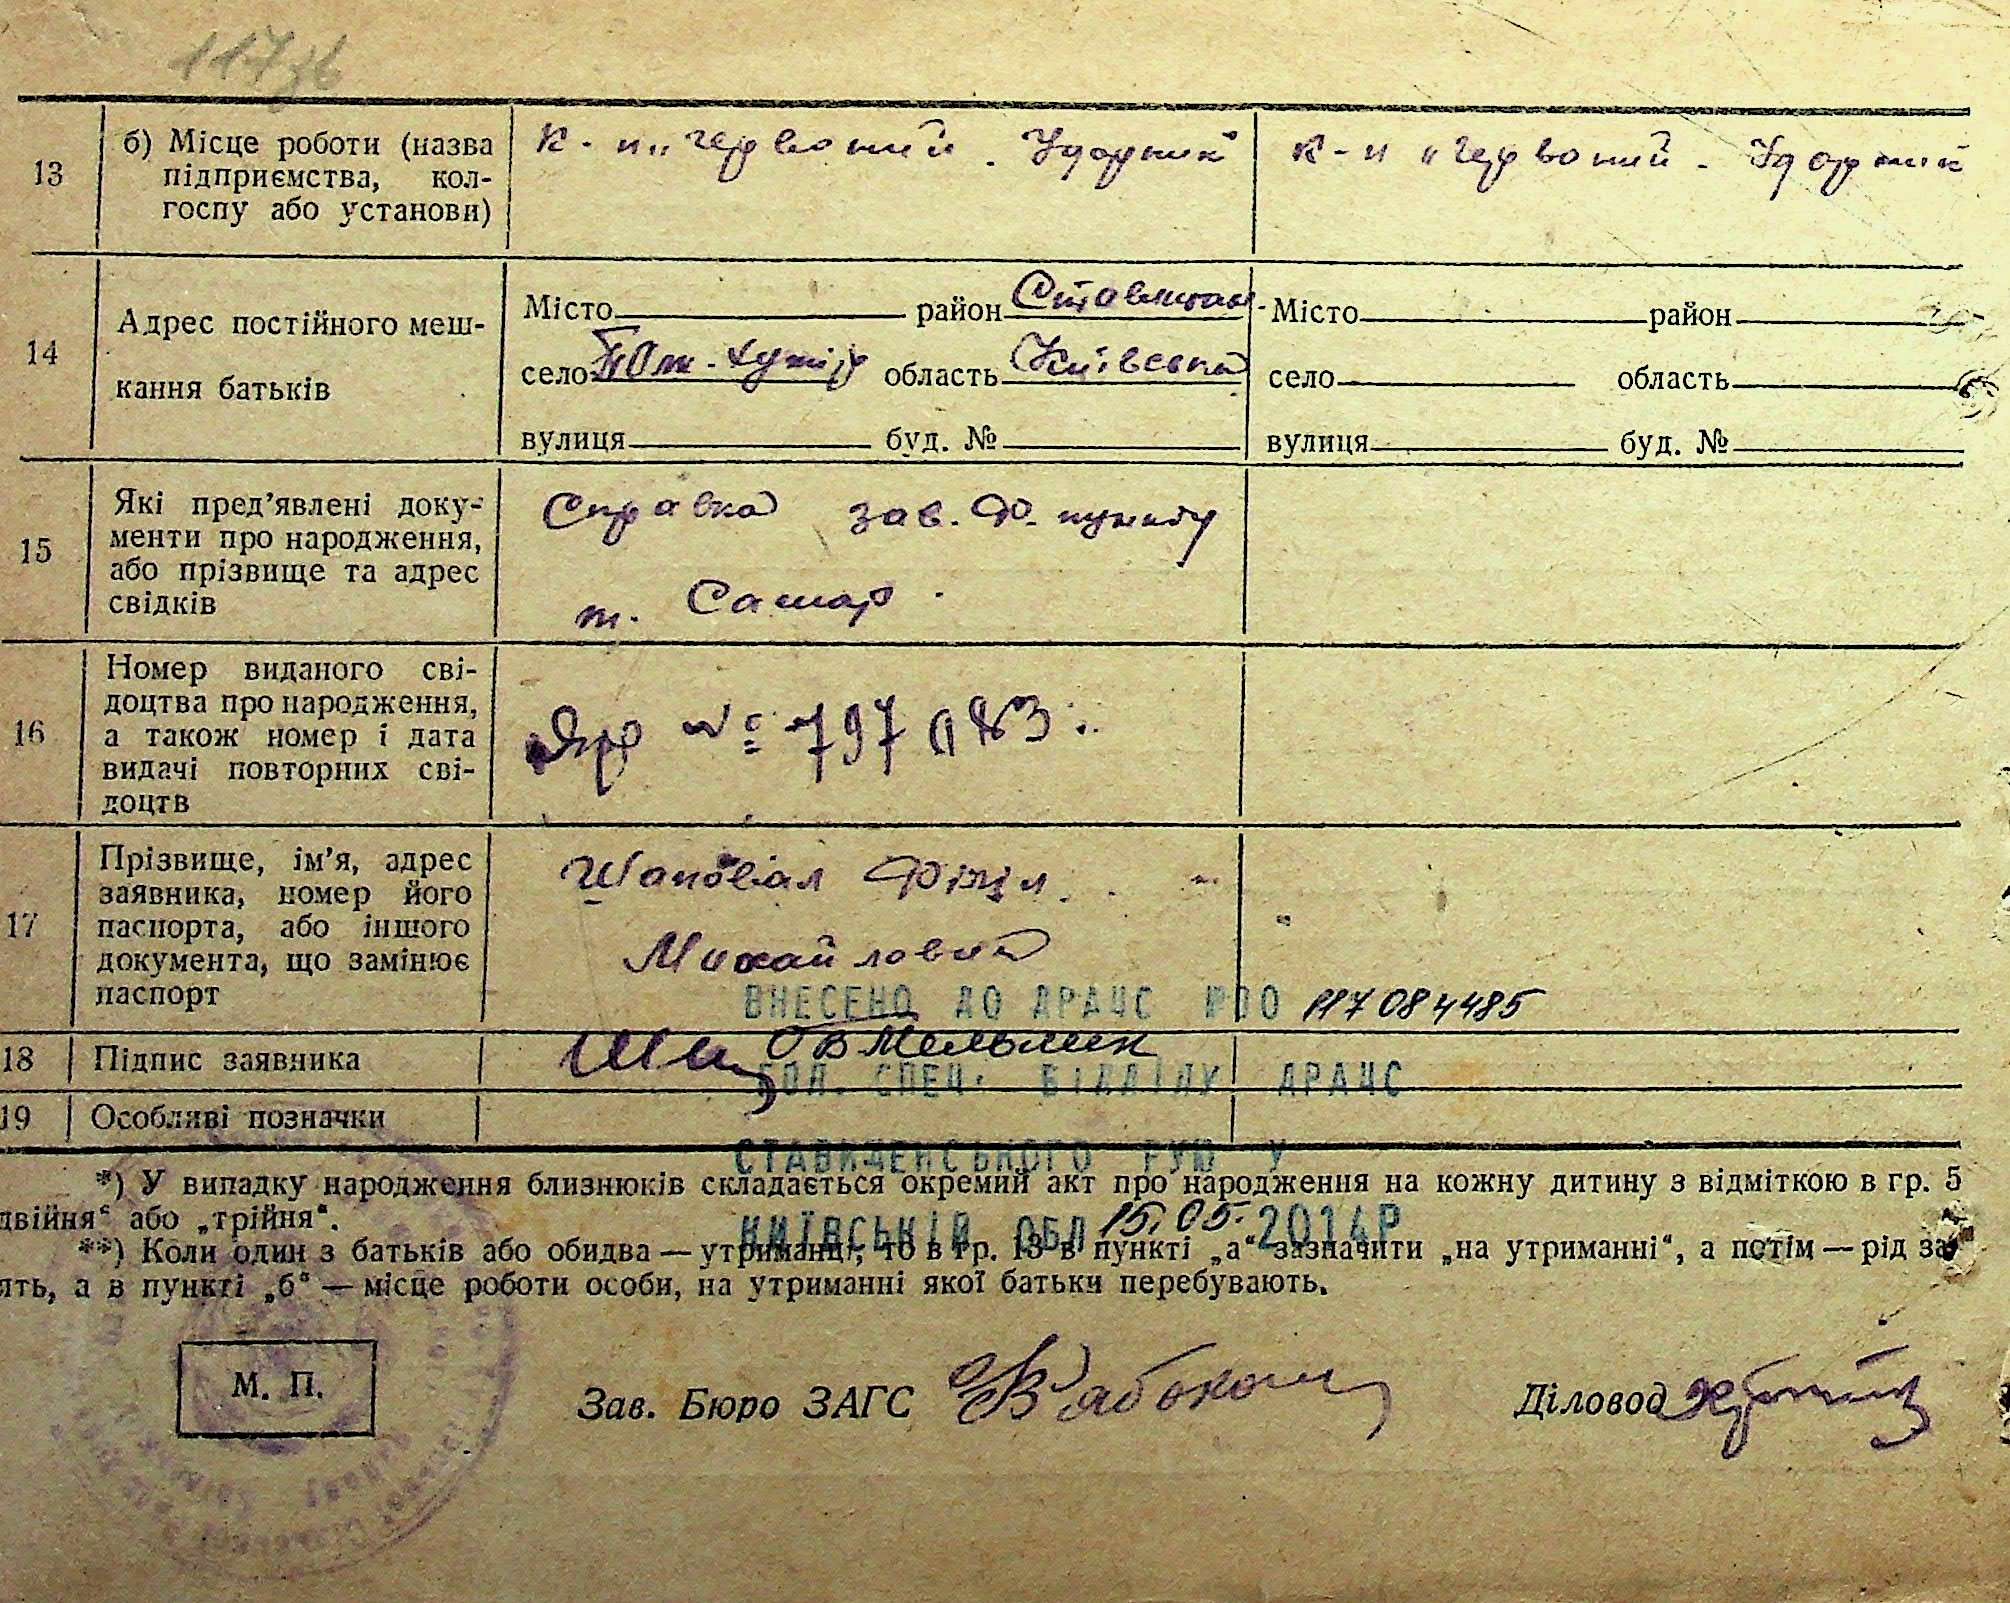 117зв
13
б) Місце роботи (назва
підприємства, кол-
госпу або установи)
к-п „Червоний. Ударник
к-п „Червоний. Ударник
14
Адрес постійного меш-
кання батьків
Місто район Ставищан.
село хутір область Київська
вулиця буд. №
Місто район
село область
вулиця буд. №
15
Які пред’явлені доку-
менти про народження,
або прізвище та адрес
свідків
Справка зав. Ф. пункту
т. Самар.
16
Номер виданого сві-
доцтва про народження,
а також номер і дата
видачі повторних сві-
доцтв
№ 797083
17
Прізвище, ім’я, адрес
заявника, номер його
паспорта, або іншого
документа, що замінює
паспорт
Шаповал
Михайлович
ВНЕСЕНО ДО ДРАЦС №00 117084485
18
Підпис заявника
ОВ Мельник
ГОЛ. СПЕЦ. ВІДДІЛУ ДРАЦС
19
Особливі позначки
СТАВИЩЕНСЬКОГО РУЮ У
*) У випадку народження близнюків складається окремий акт про народження на кожну дитину з відміткою в гр. 5
двійня“ або „трійня“.
КИЇВСЬКІЙ ОБЛ 15.05.2014Р
**) Коли один з батьків або обидва — утриманці, то в гр. 13 в пункті „а“ зазначити „на утриманні“, а потім — рід за
ять, а в пункті „б“ — місце роботи особи, на утриманні якої батьки перебувають.
М. П.
Зав. Бюро ЗАГС
Діловод